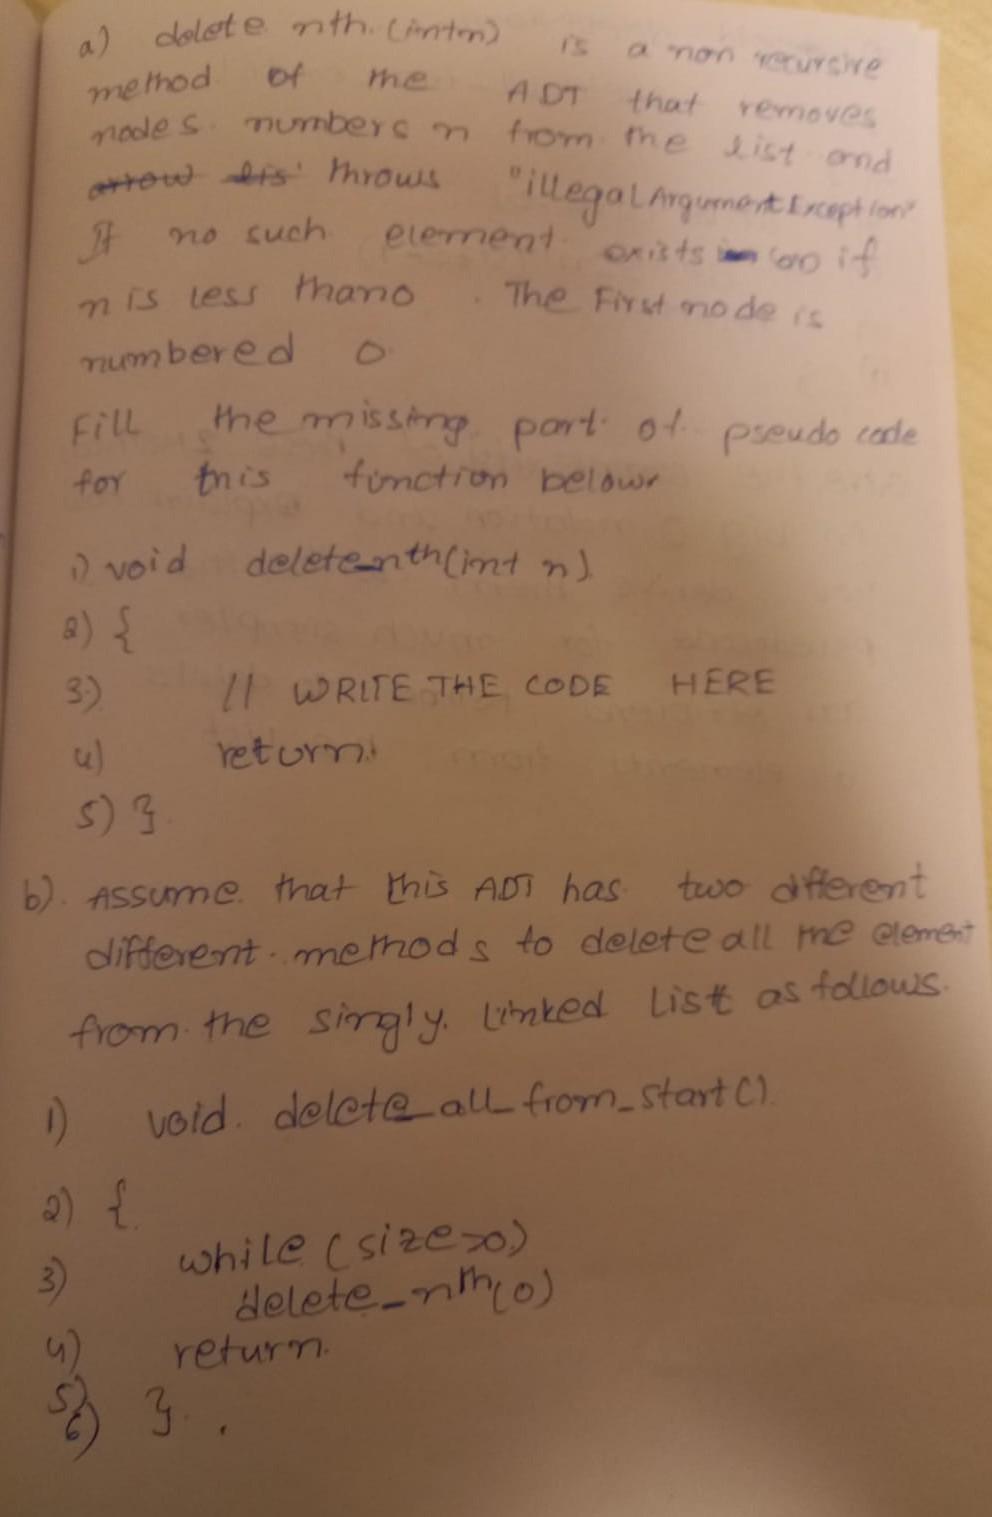 a) delete nth. (int n) is a non recursive
method of the ADT that removes
nodes. numbers n from the list and
arrow lis' throws "illegalArgumentException"
If no such element exists or if
n is less than o. The First node is
numbered 0.
Fill the missing part of pseudo code
for this function below
1) void delete_nth(int n)
2) {
3) // WRITE THE CODE HERE
4) return;
5) }
b). Assume that this ADT has two different
different. methods to delete all the element
from the singly. Linked List as follows.
1) void. delete_all_from_start()
2) {
3) while (size>0)
delete_nth(0)
4) return.
5)
6) }.